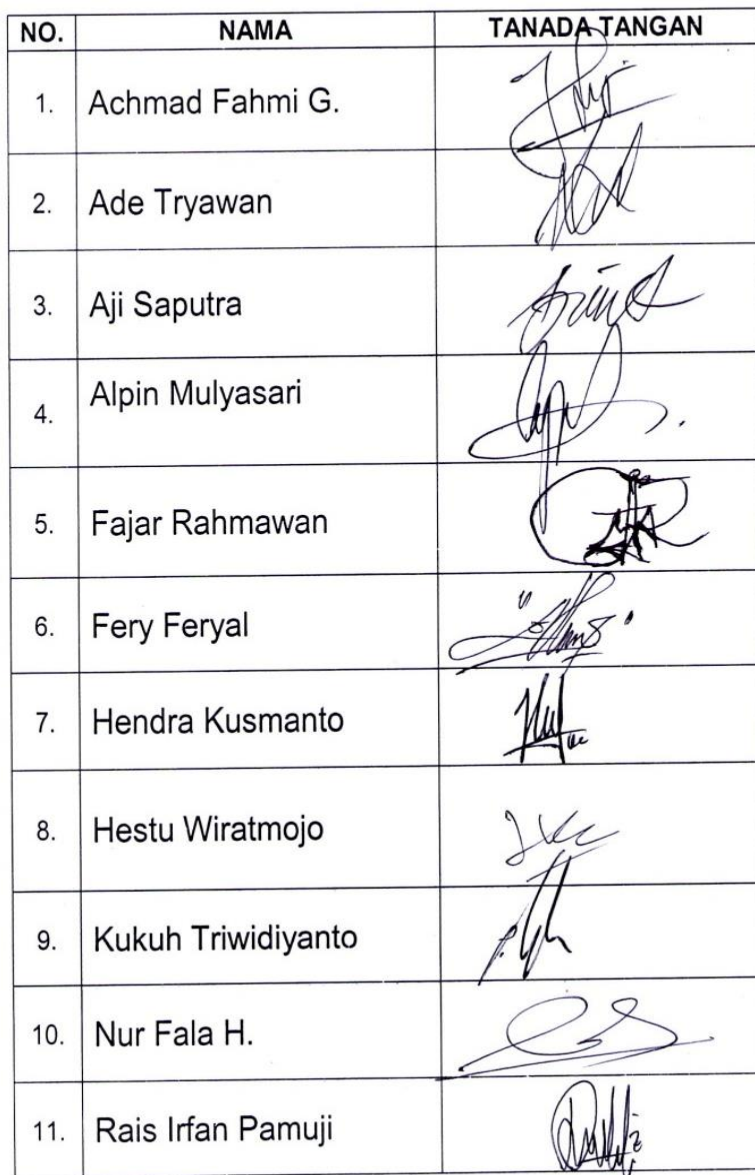 NO. NAMA TANADA TANGAN
1. Achmad Fahmi G.
2. Ade Tryawan
3. Aji Saputra
4. Alpin Mulyasari
5. Fajar Rahmawan
6. Fery Feryal
7. Hendra Kusmanto
8. Hestu Wiratmojo
9. Kukuh Triwidiyanto
10. Nur Fala H.
11. Rais Irfan Pamuji